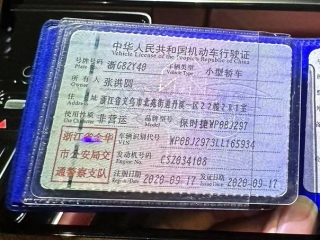 中华人民共和国机动车行驶证
Vehicle License of the People's Republic of China
号牌号码 浙G82Y40 车辆类型 小型轿车
Plate No. Vehicle Type
所有人 张洪圆
Owner
住址 浙江省义乌市北苑街道丹溪一区22幢2单1室
Address
使用性质 非营运 品牌型号 保时捷WP0BJ297
Use Character Model
浙江省金华 车辆识别代号 WP0BJ2973LL165934
VIN
市公安局交 发动机号码 CSZ034108
Engine No.
通警察支队 注册日期 2020-09-17 发证日期 2020-09-17
Register Date Issue Date